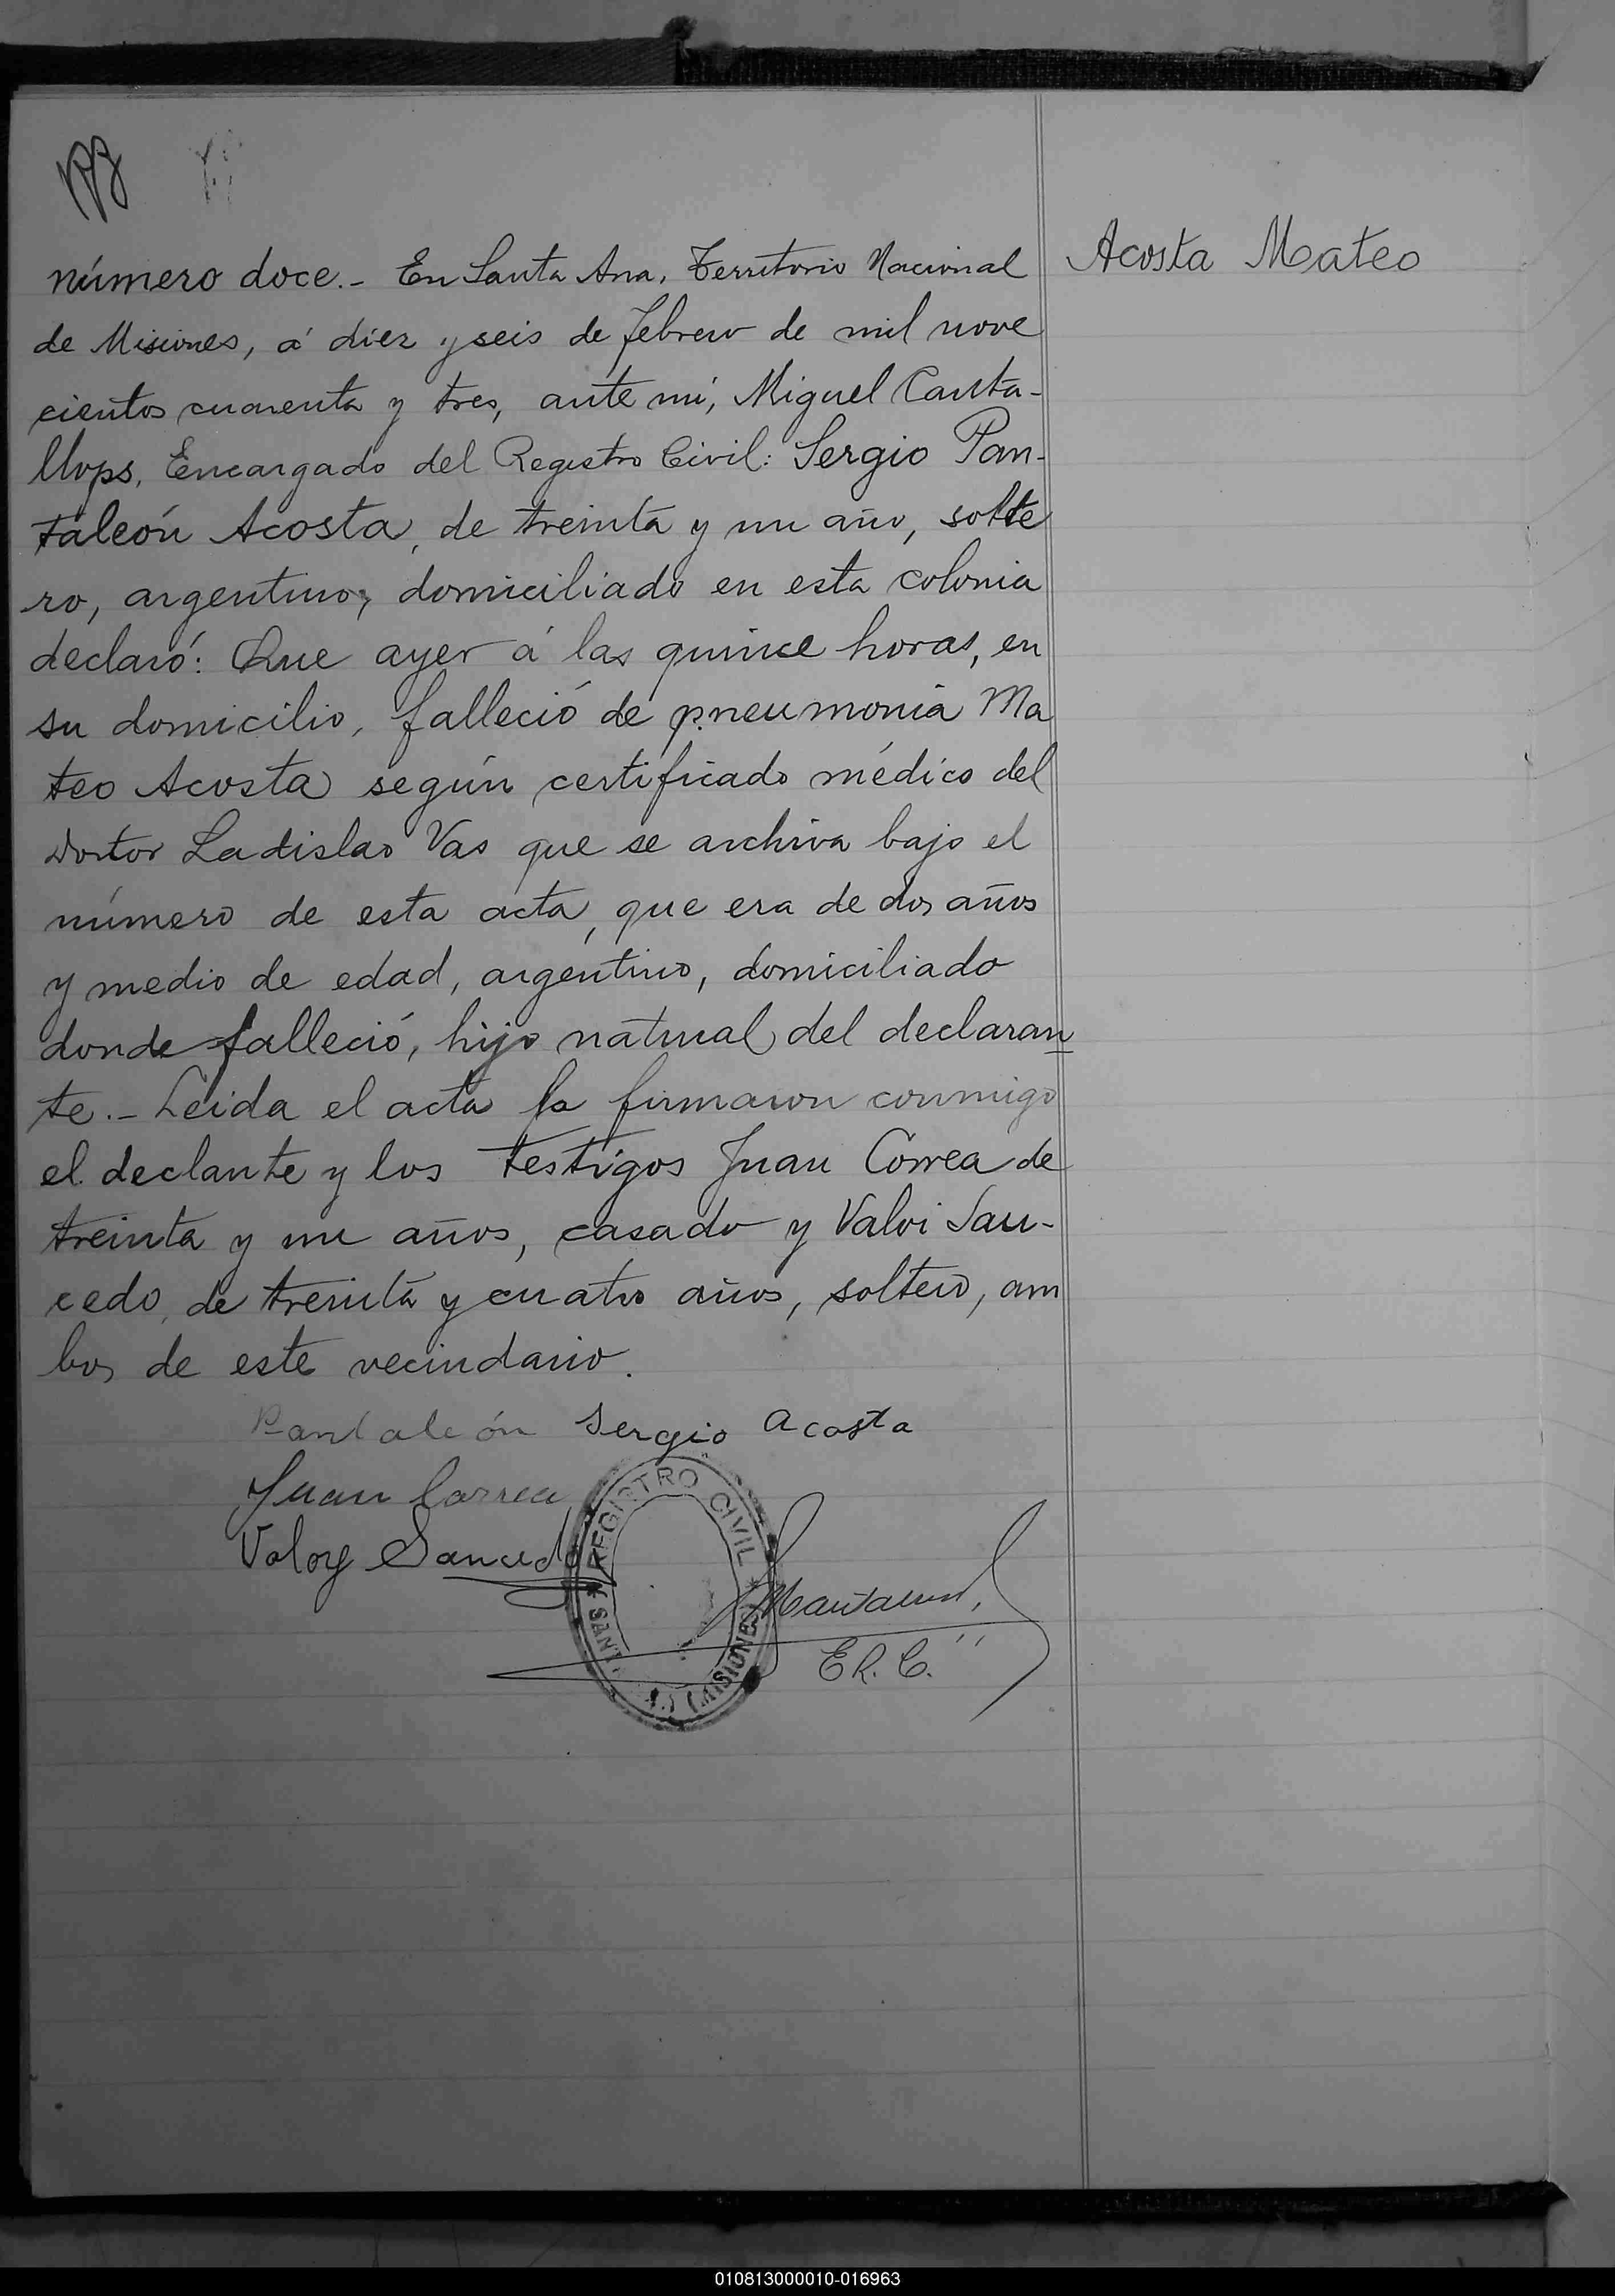 número doce.- En Santa Ana, Territorio Nacional
Acosta Mateo
de Misiones, á diez y seis de febrero de mil nove
cientos cuarenta y tres, ante mí, Miguel Canta-
llops, Encargado del Registro Civil: Sergio Pan-
taleón Acosta, de treinta y un año, solte
ro, argentino, domiciliado en esta colonia
declaró: Que ayer á las quince horas, en
su domicilio, falleció de pneumonia Ma
teo Acosta según certificado médico del
Doctor Ladislao Vas que se archiva bajo el
número de esta acta, que era de dos años
y medio de edad, argentino, domiciliado
donde falleció, hijo natural del declaran
te.- Leida el acta la firmaron conmigo
el declante y los testigos Juan Correa de
treinta y un años, casado y Valoi Sau-
cedo, de treinta y cuatro años, soltero, am
bos de este vecindario.
Pantaleón Sergio Acosta
Juan Correa
Valoy Saucedo
REGISTRO CIVIL
SANT
(MISIONES)
E R. C.
010813000010-016963